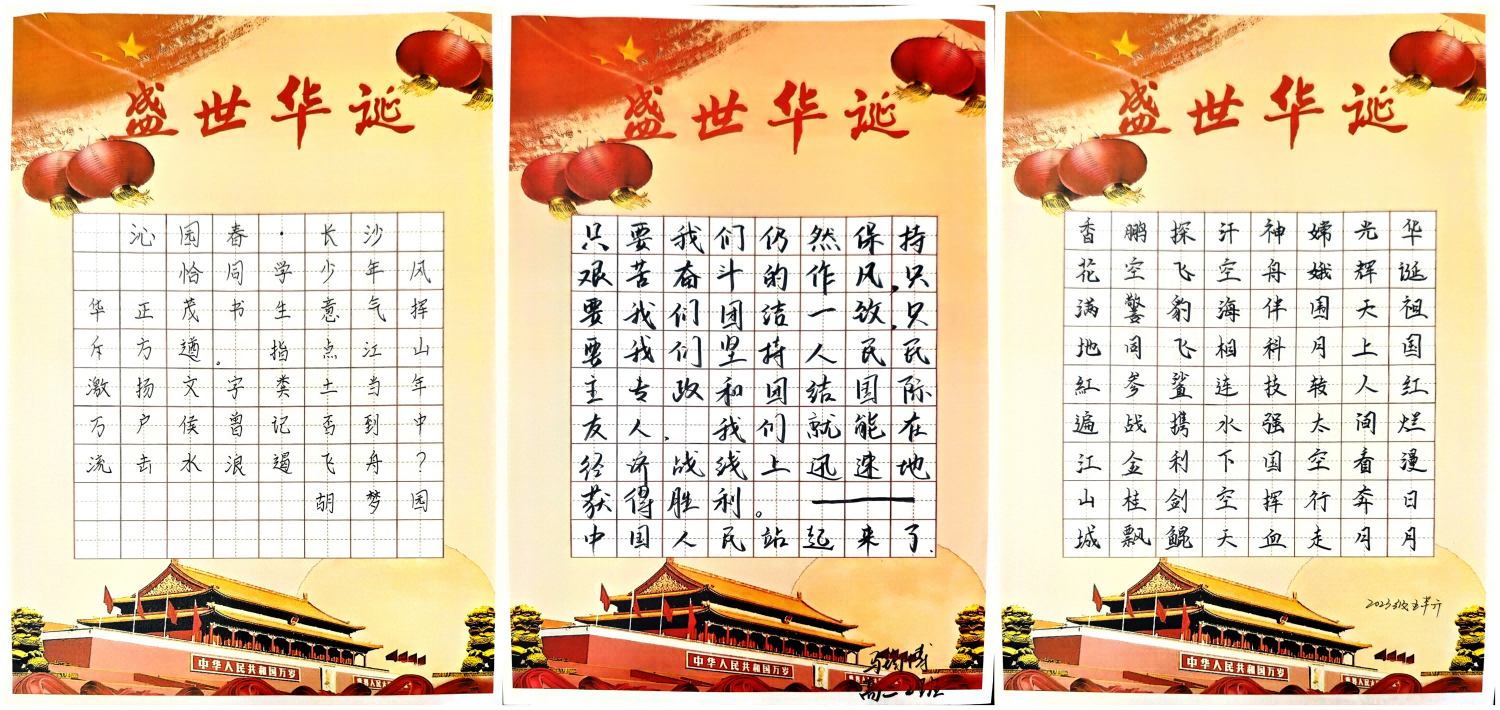 盛世华诞
沁园春·长沙
恰同学少年风
华正茂书生意气挥
斥方遒。指点江山
激扬文字粪土当年
万户侯曾记否到中
流击水浪遏飞舟?
胡梦园
中华人民共和国万岁
盛世华诞
只要我们仍然保持
艰苦奋斗的作风,只
要我们团结一致,只
要我们坚持人民民
主专政和团结国际
友人,我们就能在
经济战线上迅速地
获得胜利。——
中国人民站起来了.
中华人民共和国万岁
高二
盛世华诞
华诞祖国红烂漫日月
光辉天上人间看奔月
嫦娥围月转太空行走
神舟伴科技强国挥血
汗空海相连水下空天
探飞豹飞鲨携利剑鲲
鹏空警同参战金桂飘
香花满地红遍江山城
2023级
中华人民共和国万岁